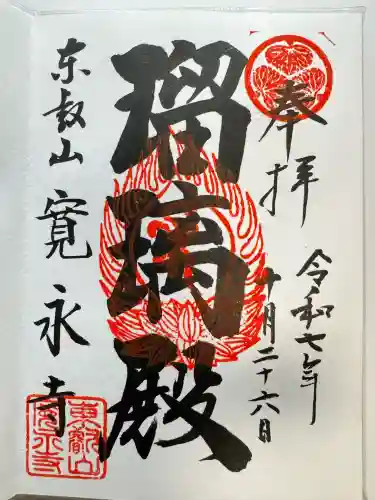 奉拝
令和七年
十月二十六日
瑠璃殿
东叡山
寛永寺
東叡山
寛永寺